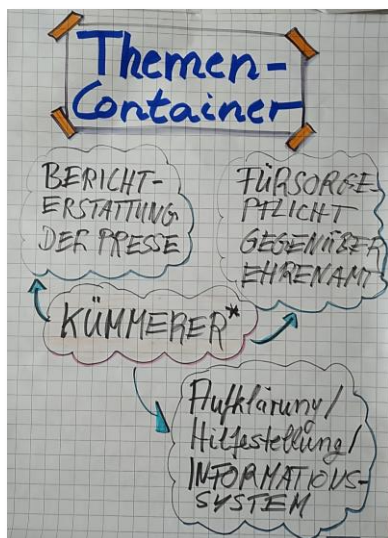 Themen-
Container
BERICHT-
ERSTATTUNG
DER PRESSE
FÜRSORGE-
PFLICHT
GEGENÜBER
EHRENAMT
KÜMMERER*
Aufklärung/
Hilfestellung/
INFORMATIONS-
SYSTEM